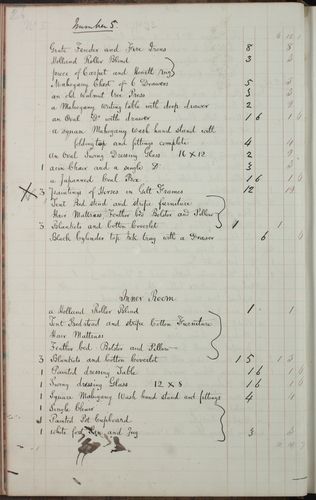 Number 5.
Grate Fender and Fire Irons 8 8
Holland Roller Blind 3 3
piece of Carpet and Hearth Rug
Mahogany Chest of 6 Drawers 5 5
an old Walnut tree Press 3 3
a Mahogany Writing table with deep drawer 2 2
an Oval Do with drawer 1 6 1 6
a square Mahogany Wash hand stand with
folding top and fittings complete 4 4
an Oval Swing Dressing Glass 16 x 12 2 2
1 arm Chair and a single Do 3 3
a Japanned Coal Box 1 6 1 6
3 Paintings of Horses in Gilt Frames 12 12
Tent Bed stead and stripe furniture
Hair Mattress Feather bed Bolster and Pillow
3 Blankets and Cotton Coverlet 1 1
Black Cylinder top Ink tray with a Drawer 6 6
Inner Room
a Holland Roller Blind 1 1
Tent Bedstead and stripe Cotton Furniture
Hair Mattress
Feather bed Bolster and Pillow
3 Blankets and Cotton Coverlet 1 5 1 5
1 Painted dressing Table 1 6 1 6
1 Swing dressing Glass 12 x 8 1 6 1 6
1 Square Mahogany Wash hand stand and fittings 4 4
1 Single Chair
1 Painted Pot Cupboard
1 white foot Pan and Jug 3 3